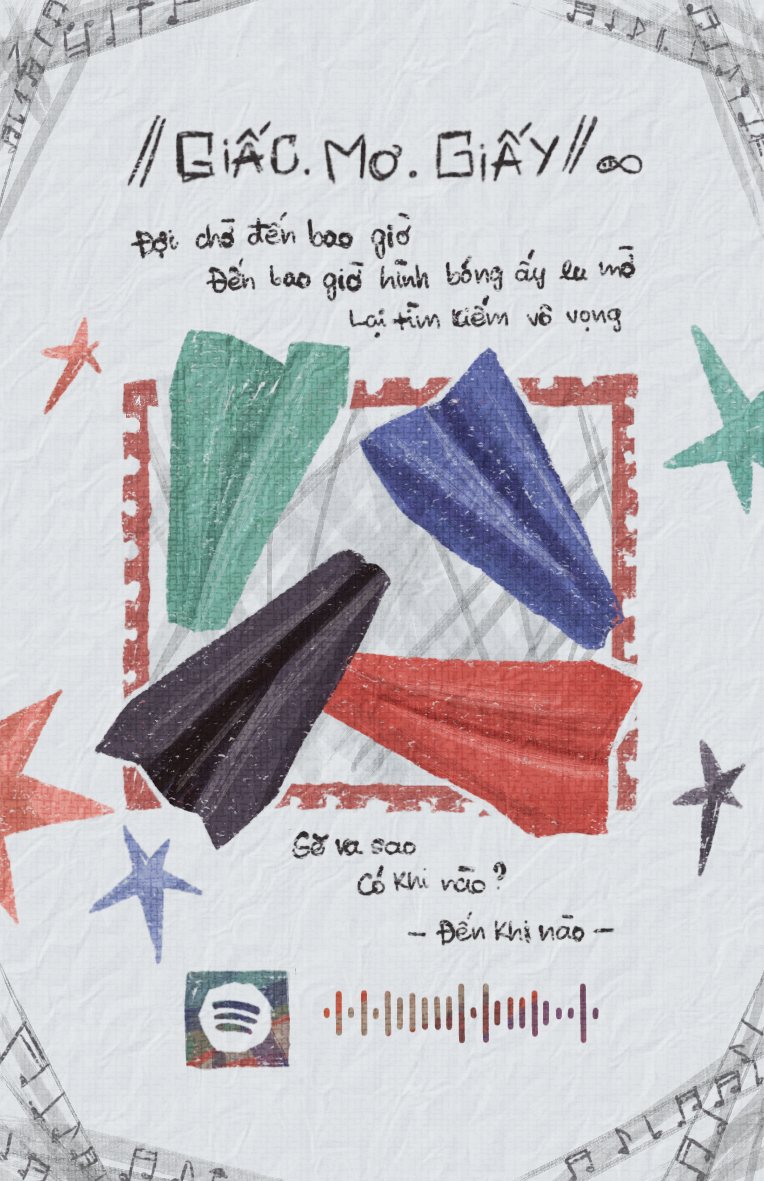 // GIẤC. MƠ. GIẤY //
Đợi chờ đến bao giờ
Đến bao giờ hình bóng ấy lu mờ
Lại tìm kiếm vô vọng
va sao
Có khi nào?
- Đến khi nào -